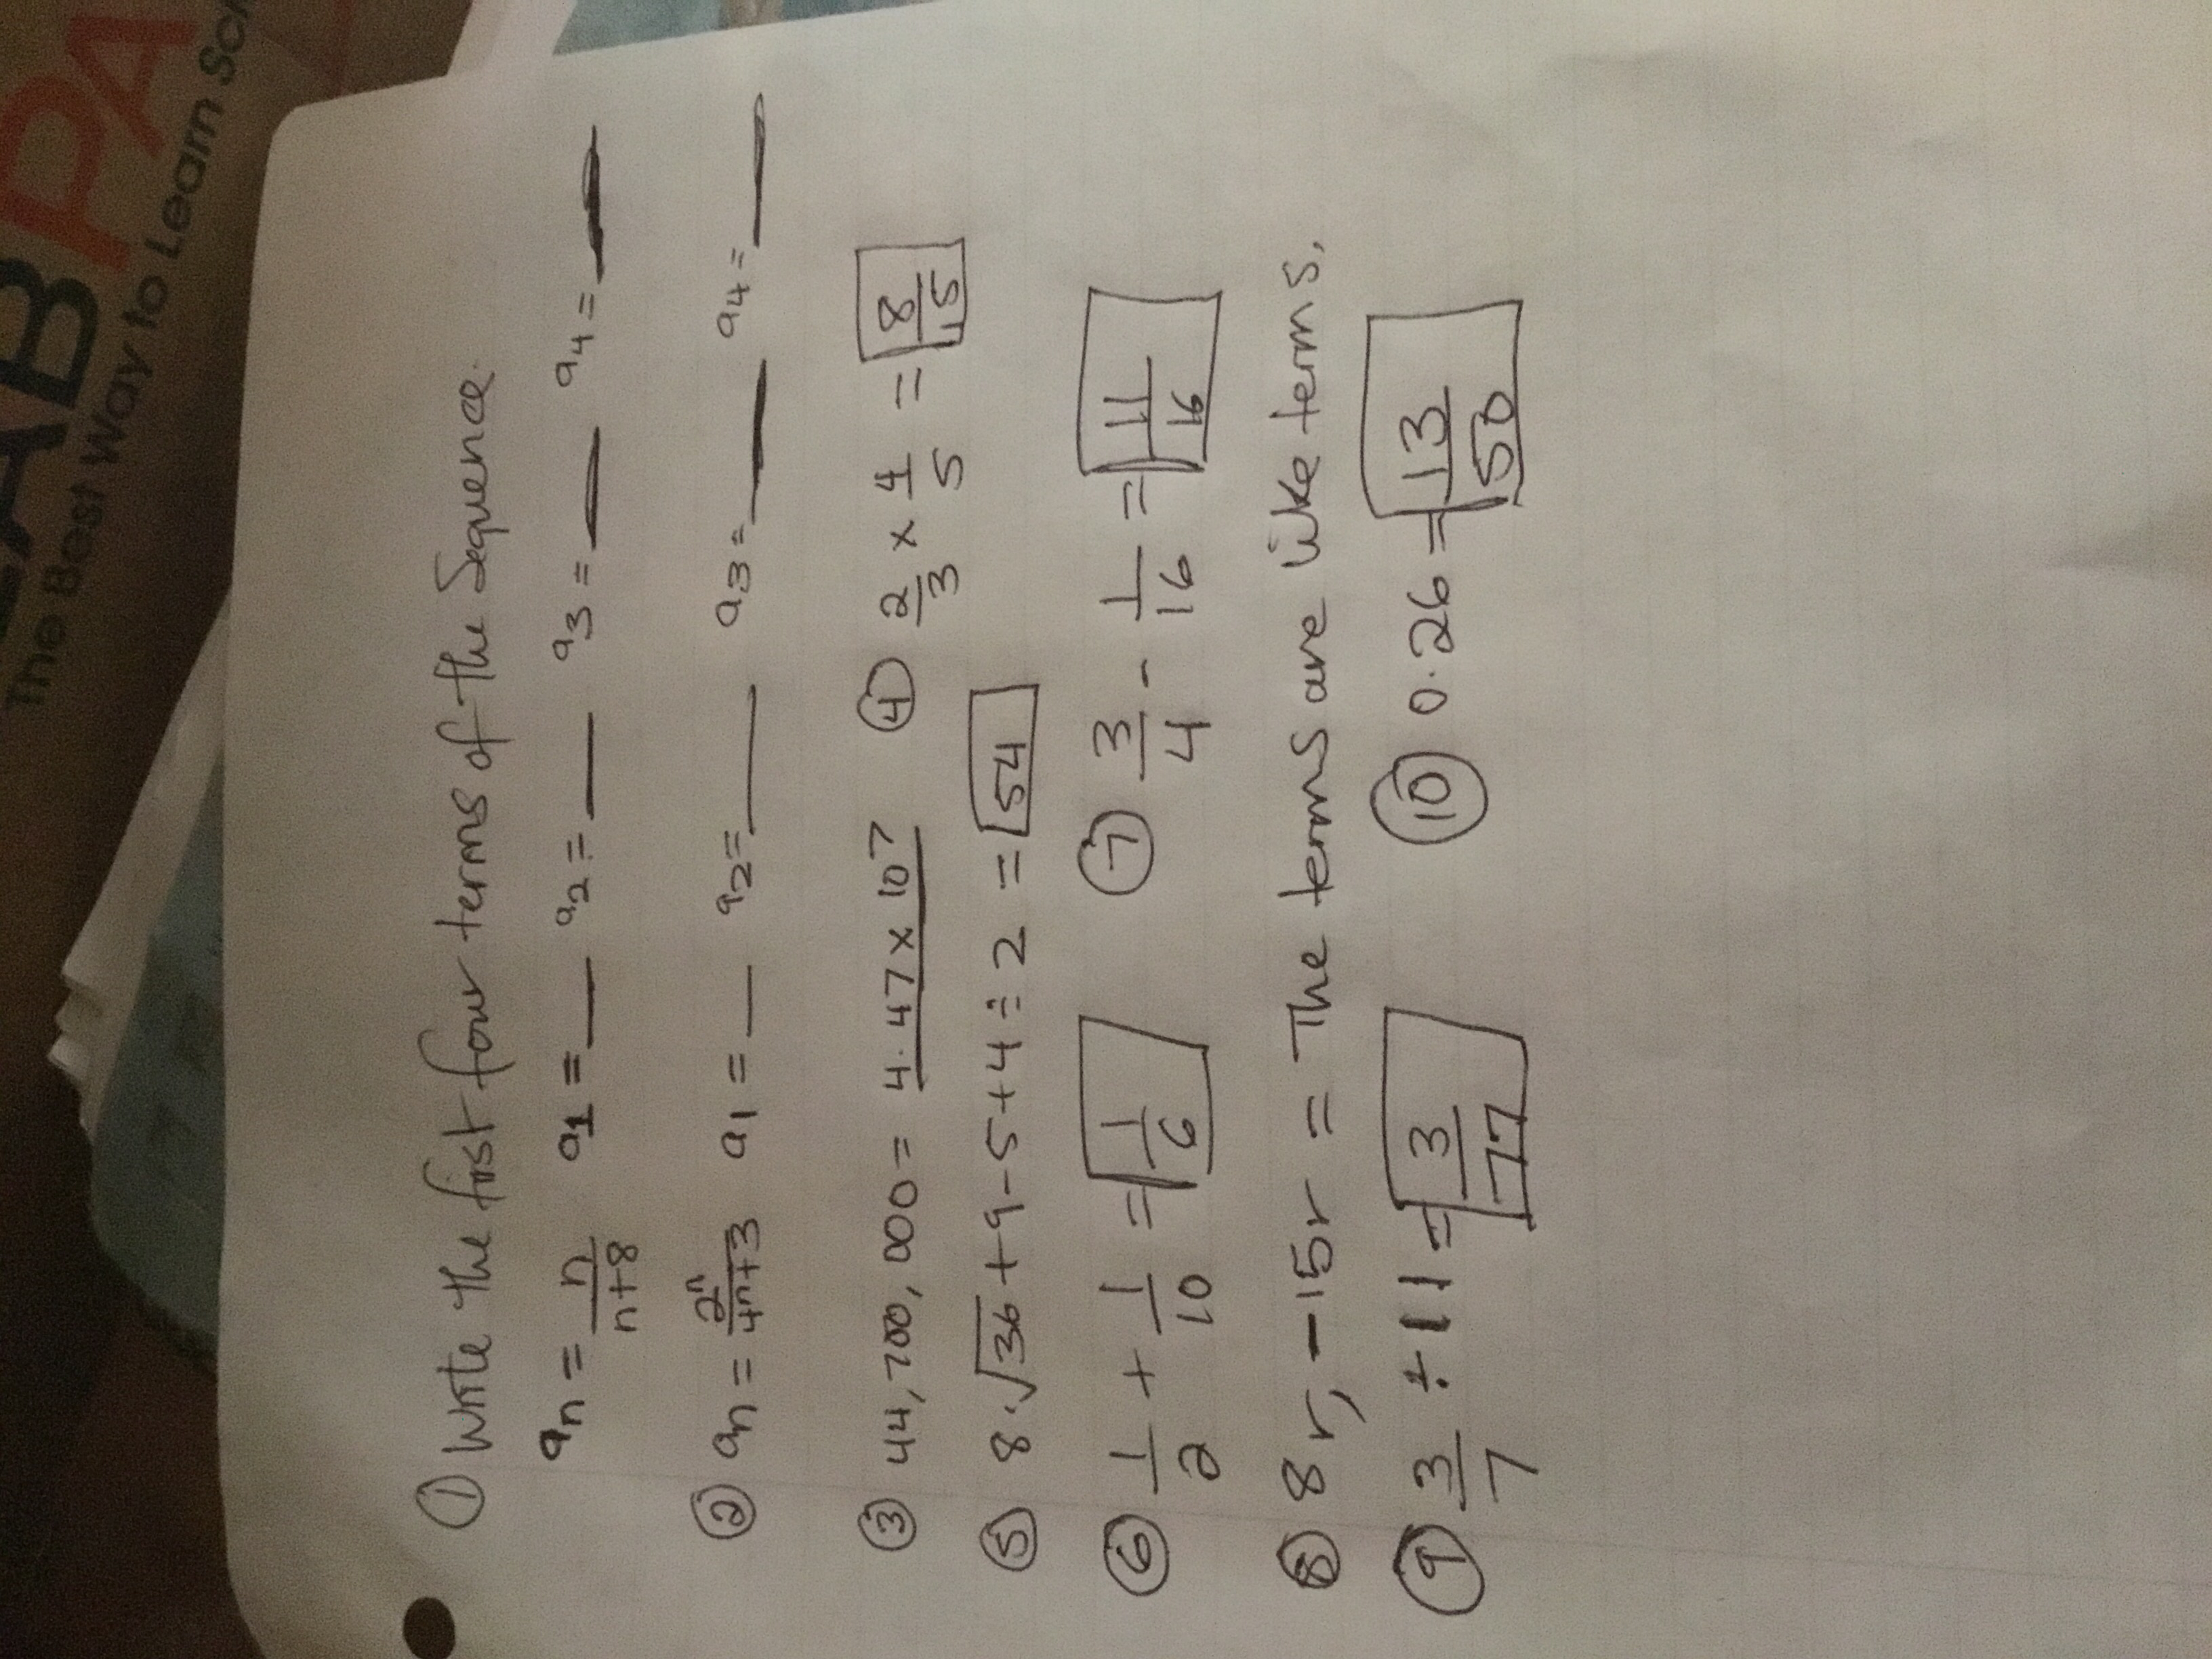 The Best Way to Learn
① Write the first four terms of the Sequence.
aₙ = n/(n+8) a₁ = __ a₂ = __ a₃ = __ a₄ = __
② aₙ = 2ⁿ/(4ⁿ+3) a₁ = __ a₂ = __ a₃ = __ a₄ = __
③ 44,700,000 = 4.47 x 10⁷ ④ 2/3 x 4/5 = 8/15
⑤ 8·√36 + 9 - 5 + 4 ÷ 2 = 54
⑥ 1/2 + 1/10 = 1/6 ⑦ 3/4 - 1/16 = 11/16
⑧ 8r, -15r = The terms are like terms.
⑨ 3/7 ÷ 11 = 3/77 ⑩ 0.26 = 13/50